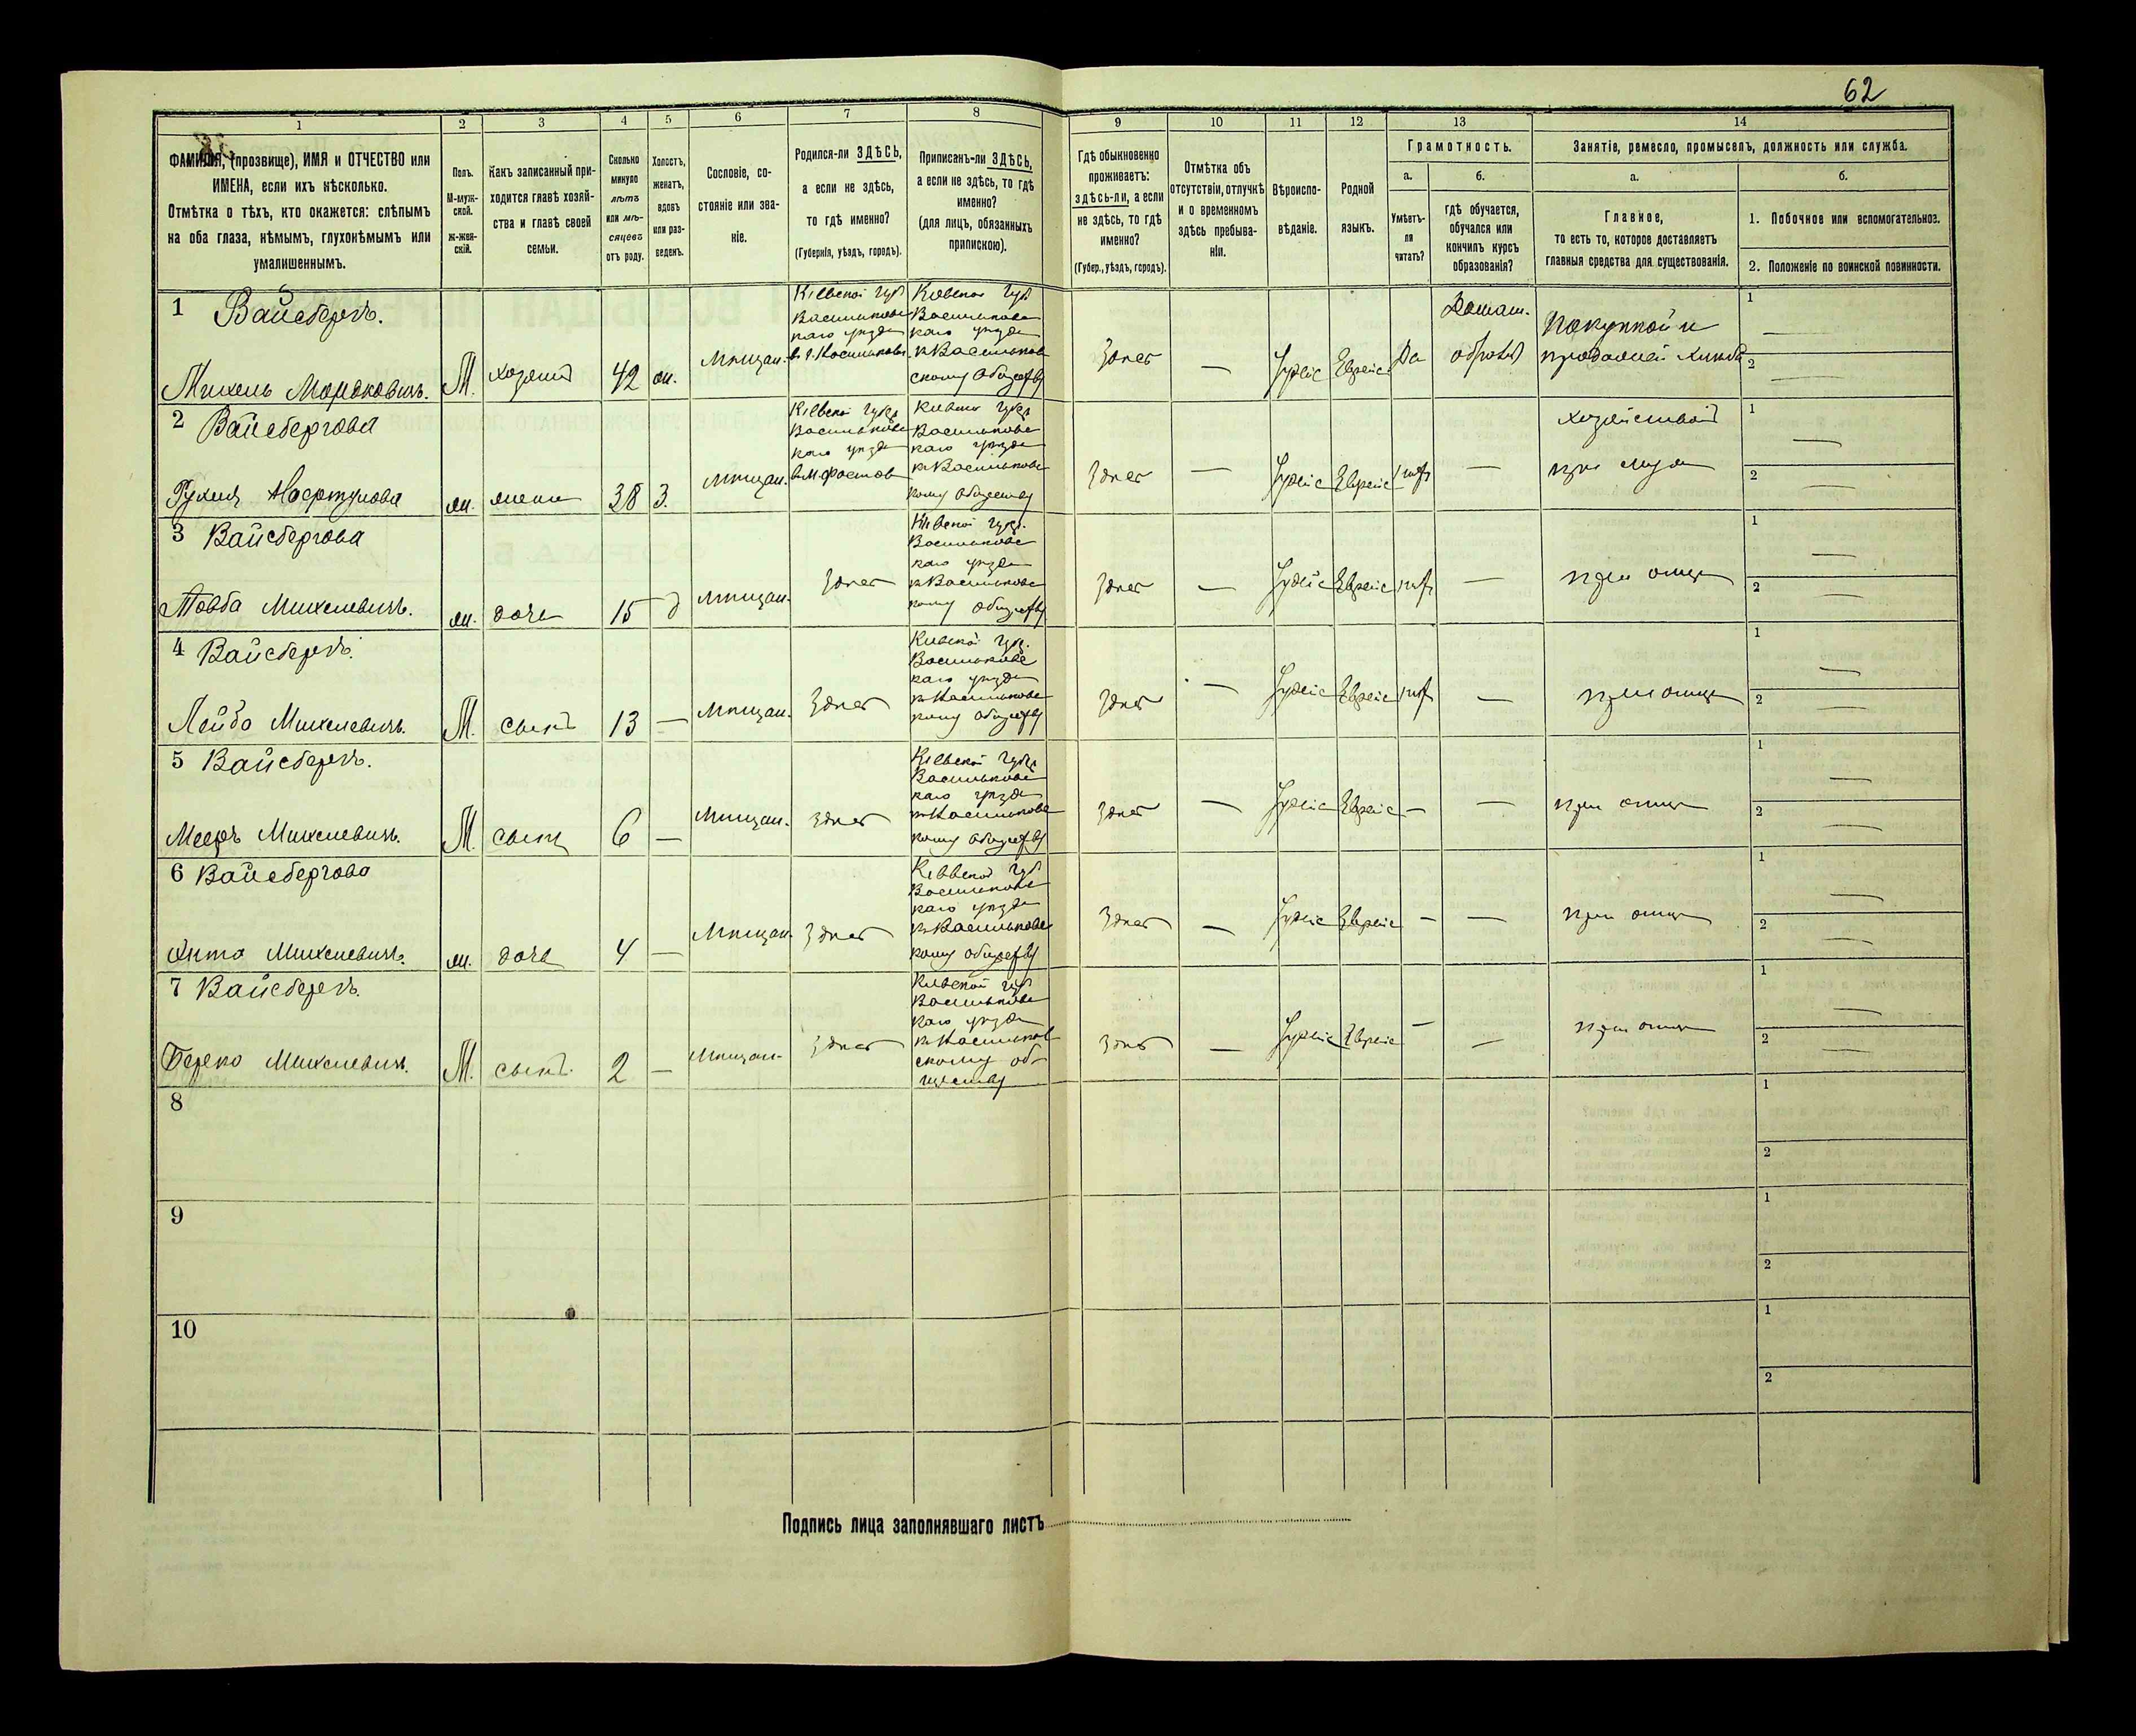 62
1 2 3 4 5 6 7 8 9 10 11 12 13 14
ФАМИЛІЯ, (прозвище), ИМЯ и ОТЧЕСТВО или
ИМЕНА, если ихъ нѣсколько.
Отмѣтка о тѣхъ, кто окажется: слѣпымъ
на оба глаза, нѣмымъ, глухонѣмымъ или
умалишеннымъ.
Полъ.
М-муж-
ской.
ж-жен-
скій.
Какъ записанный при-
ходится главѣ хозяй-
ства и главѣ своей
семьи.
Сколько
минуло
лѣтъ
или мѣ-
сяцевъ
отъ роду.
Холостъ,
женатъ,
вдовъ
или раз-
веденъ.
Сословіе, со-
стояніе или зва-
ніе.
Родился-ли ЗДѢСЬ,
а если не здѣсь,
то гдѣ именно?
(Губернія, уѣздъ, городъ).
Приписанъ-ли ЗДѢСЬ,
а если не здѣсь, то гдѣ
именно?
(для лицъ, обязанныхъ
припискою).
Гдѣ обыкновенно
проживаетъ:
здѣсь-ли, а если
не здѣсь, то гдѣ
именно?
(Губер., уѣздъ, городъ).
Отмѣтка объ
отсутствіи, отлучкѣ
и о временномъ
здѣсь пребыва-
ніи.
Вѣроиспо-
вѣданіе.
Родной
языкъ.
Грамотность.
а.
Умѣетъ-
ли
читать?
б.
гдѣ обучается,
обучался или
кончилъ курсъ
образованія?
Занятіе, ремесло, промыселъ, должность или служба.
а.
Главное,
то есть то, которое доставляетъ
главныя средства для существованія.
б.
1. Побочное или вспомогательное.
2. Положеніе по воинской повинности.
1 Вайсбергъ.
Михель Мордковичъ.
М.
хозяинъ
42
ж.
Мѣщан.
Кіевской губ
Васильковс
каго уѣзда
в г. Васильковѣ
Кіевской губ
Васильковс
каго уѣзда
к Васильков
скому обществу
Здѣсь
—
Іудейс
Еврейс
Да
Домаш.
образов
Покупкой и
продажей хлѣба
1 —
2 —
2 Вайсбергова
Рухля
ж.
жена
38
З.
Мѣщан.
Кіевской губ
Васильковс
каго уѣзда
в М. Фастов
Кіевской губ
Васильковс
каго уѣзда
к Васильковс
кому обществу
Здѣсь
—
Іудейс
Еврейс
нѣт
—
хозяйствомъ
при мужѣ
1 —
2 —
3 Вайсбергова
Товба Михелевичъ.
ж.
дочь
15
д
Мѣщан.
Здѣсь
Кіевской губ.
Васильковс
каго уѣзда
к Васильковс
кому обществу
Здѣсь
—
Іудейс
Еврейс
нѣт
—
при отцѣ
1 —
2 —
4 Вайсбергъ.
Лейба Михелевичъ.
М.
сынъ
13
—
Мѣщан.
Здѣсь
Кіевской губ.
Васильковс
каго уѣзда
к Васильковс
кому обществу
Здѣсь
—
Іудейс
Еврейс
нѣт
—
при отцѣ
1 —
2 —
5 Вайсбергъ.
Мееръ Михелевичъ.
М.
сынъ
6
—
Мѣщан.
Здѣсь
Кіевской губ
Васильковс
каго уѣзда
к Васильковс
кому обществу
Здѣсь
—
Іудейс
Еврейс
—
—
при отцѣ
1 —
2 —
6 Вайсбергова
Хита Михелевичъ.
ж.
дочь
4
—
Мѣщан.
Здѣсь
Кіевской губ
Васильковс
каго уѣзда
к Васильковс
кому обществу
Здѣсь
—
Іудейс
Еврейс
—
—
при отцѣ
1 —
2 —
7 Вайсбергъ.
Берко Михелевичъ.
М.
сынъ
2
—
Мѣщан.
Здѣсь
Кіевской губ
Васильковс
каго уѣзда
к Васильков
скому об-
ществу
Здѣсь
—
Іудейс
Еврейс
—
—
при отцѣ
1 —
2 —
8
1
2
9
1
2
10
1
2
Подпись лица заполнявшаго листъ